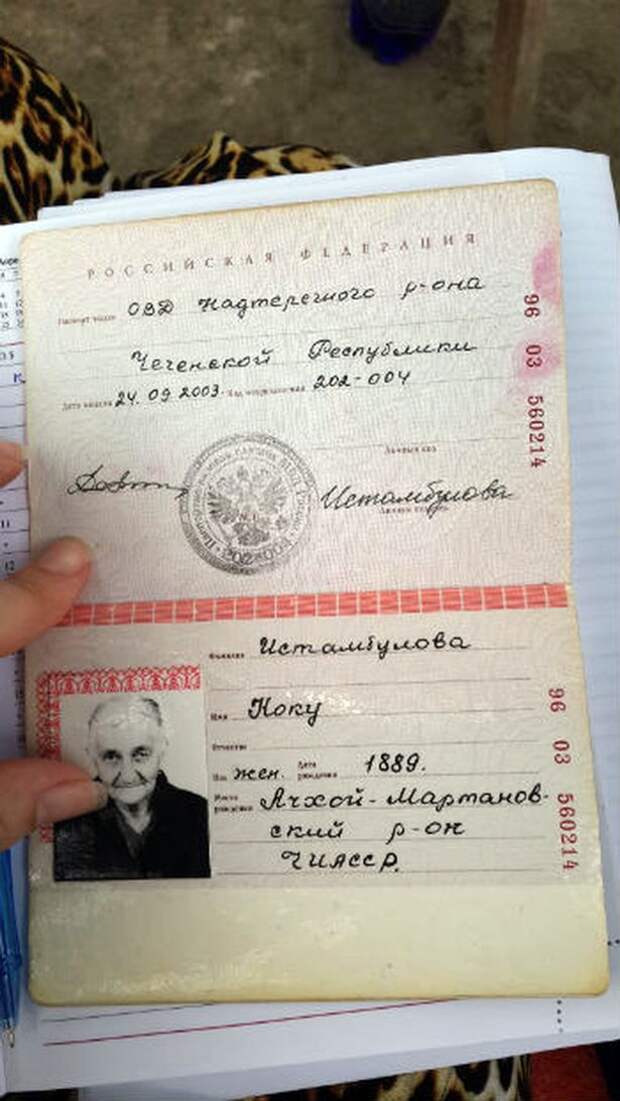 РОССИЙСКАЯ ФЕДЕРАЦИЯ
Паспорт выдан ОВД Надтеречного р-она
Чеченской Республики
Дата выдачи 24.09.2003. Код подразделения 202-004
96 03 560214
Личный код
Истамбулова
Личная подпись
202-004
Фамилия Истамбулова
Имя Коку
Отчество
Пол жен. Дата рождения 1889.
Место рождения Ачхой-Мартанов-
ский р-он
ЧИАССР.
96 03 560214